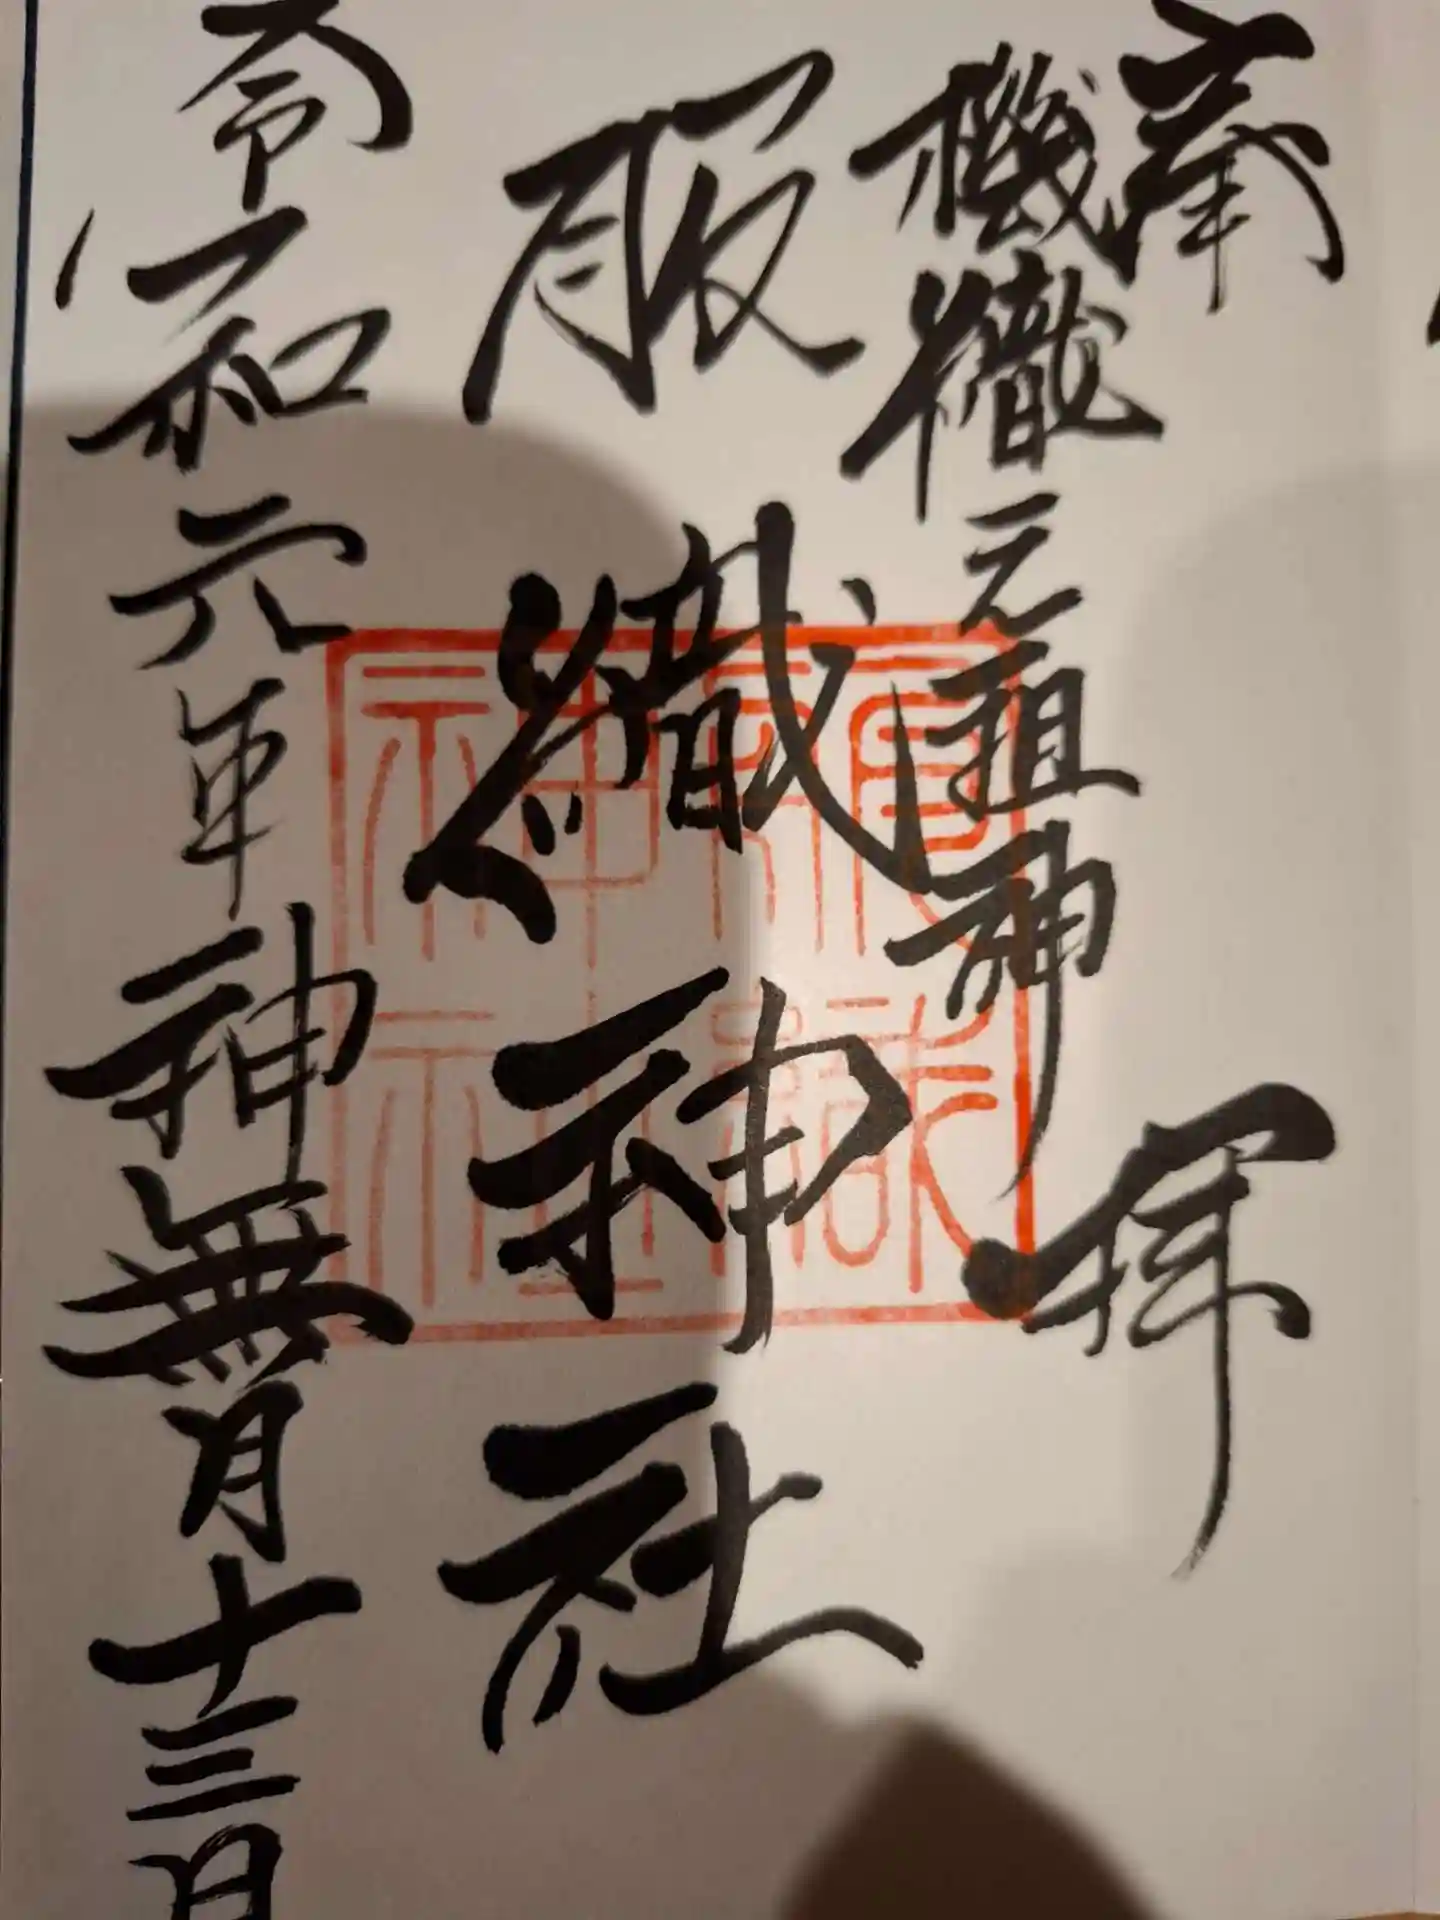 奉
拝
機織元祖神
服織神社
令和元年神無月十三日
服織神社